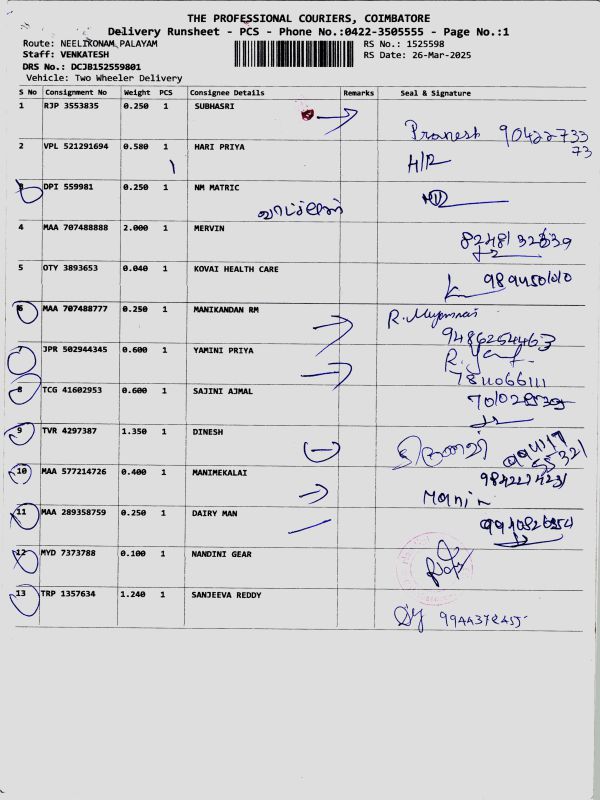 THE PROFESSIONAL COURIERS, COIMBATORE
Delivery Runsheet - PCS - Phone No.:0422-3505555 - Page No.:1
Route: NEELIKONAM PALAYAM RS No.: 1525598
Staff: VENKATESH RS Date: 26-Mar-2025
DRS No.: DCJB152559801
Vehicle: Two Wheeler Delivery
S No Consignment No Weight PCS Consignee Details Remarks Seal & Signature
1 RJP 3553835 0.250 1 SUBHASRI
Pranesh 90422733
73
2 VPL 521291694 0.580 1 HARI PRIYA
H/R
3 DPI 559981 0.250 1 NM MATRIC
4 MAA 707488888 2.000 1 MERVIN
5 OTY 3893653 0.040 1 KOVAI HEALTH CARE
6 MAA 707488777 0.250 1 MANIKANDAN RM
9486254463
7 JPR 502944345 0.600 1 YAMINI PRIYA
7811066111
8 TCG 41602953 0.600 1 SAJINI AJMAL
9 TVR 4297387 1.350 1 DINESH
10 MAA 577214726 0.400 1 MANIMEKALAI
11 MAA 289358759 0.250 1 DAIRY MAN
12 MYD 7373788 0.100 1 NANDINI GEAR
13 TRP 1357634 1.240 1 SANJEEVA REDDY